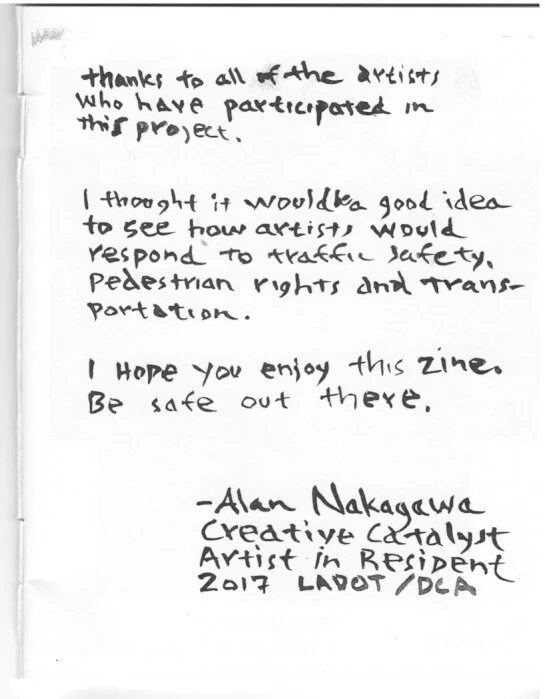 thanks to all of the artists
who have participated in
this project.
I thought it would be a good idea
to see how artists would
respond to traffic safety,
pedestrian rights and trans-
portation.
I Hope you enjoy this zine.
Be safe out there.
-Alan Nakagawa
Creative Catalyst
Artist in Resident
2017 LADOT/DCA